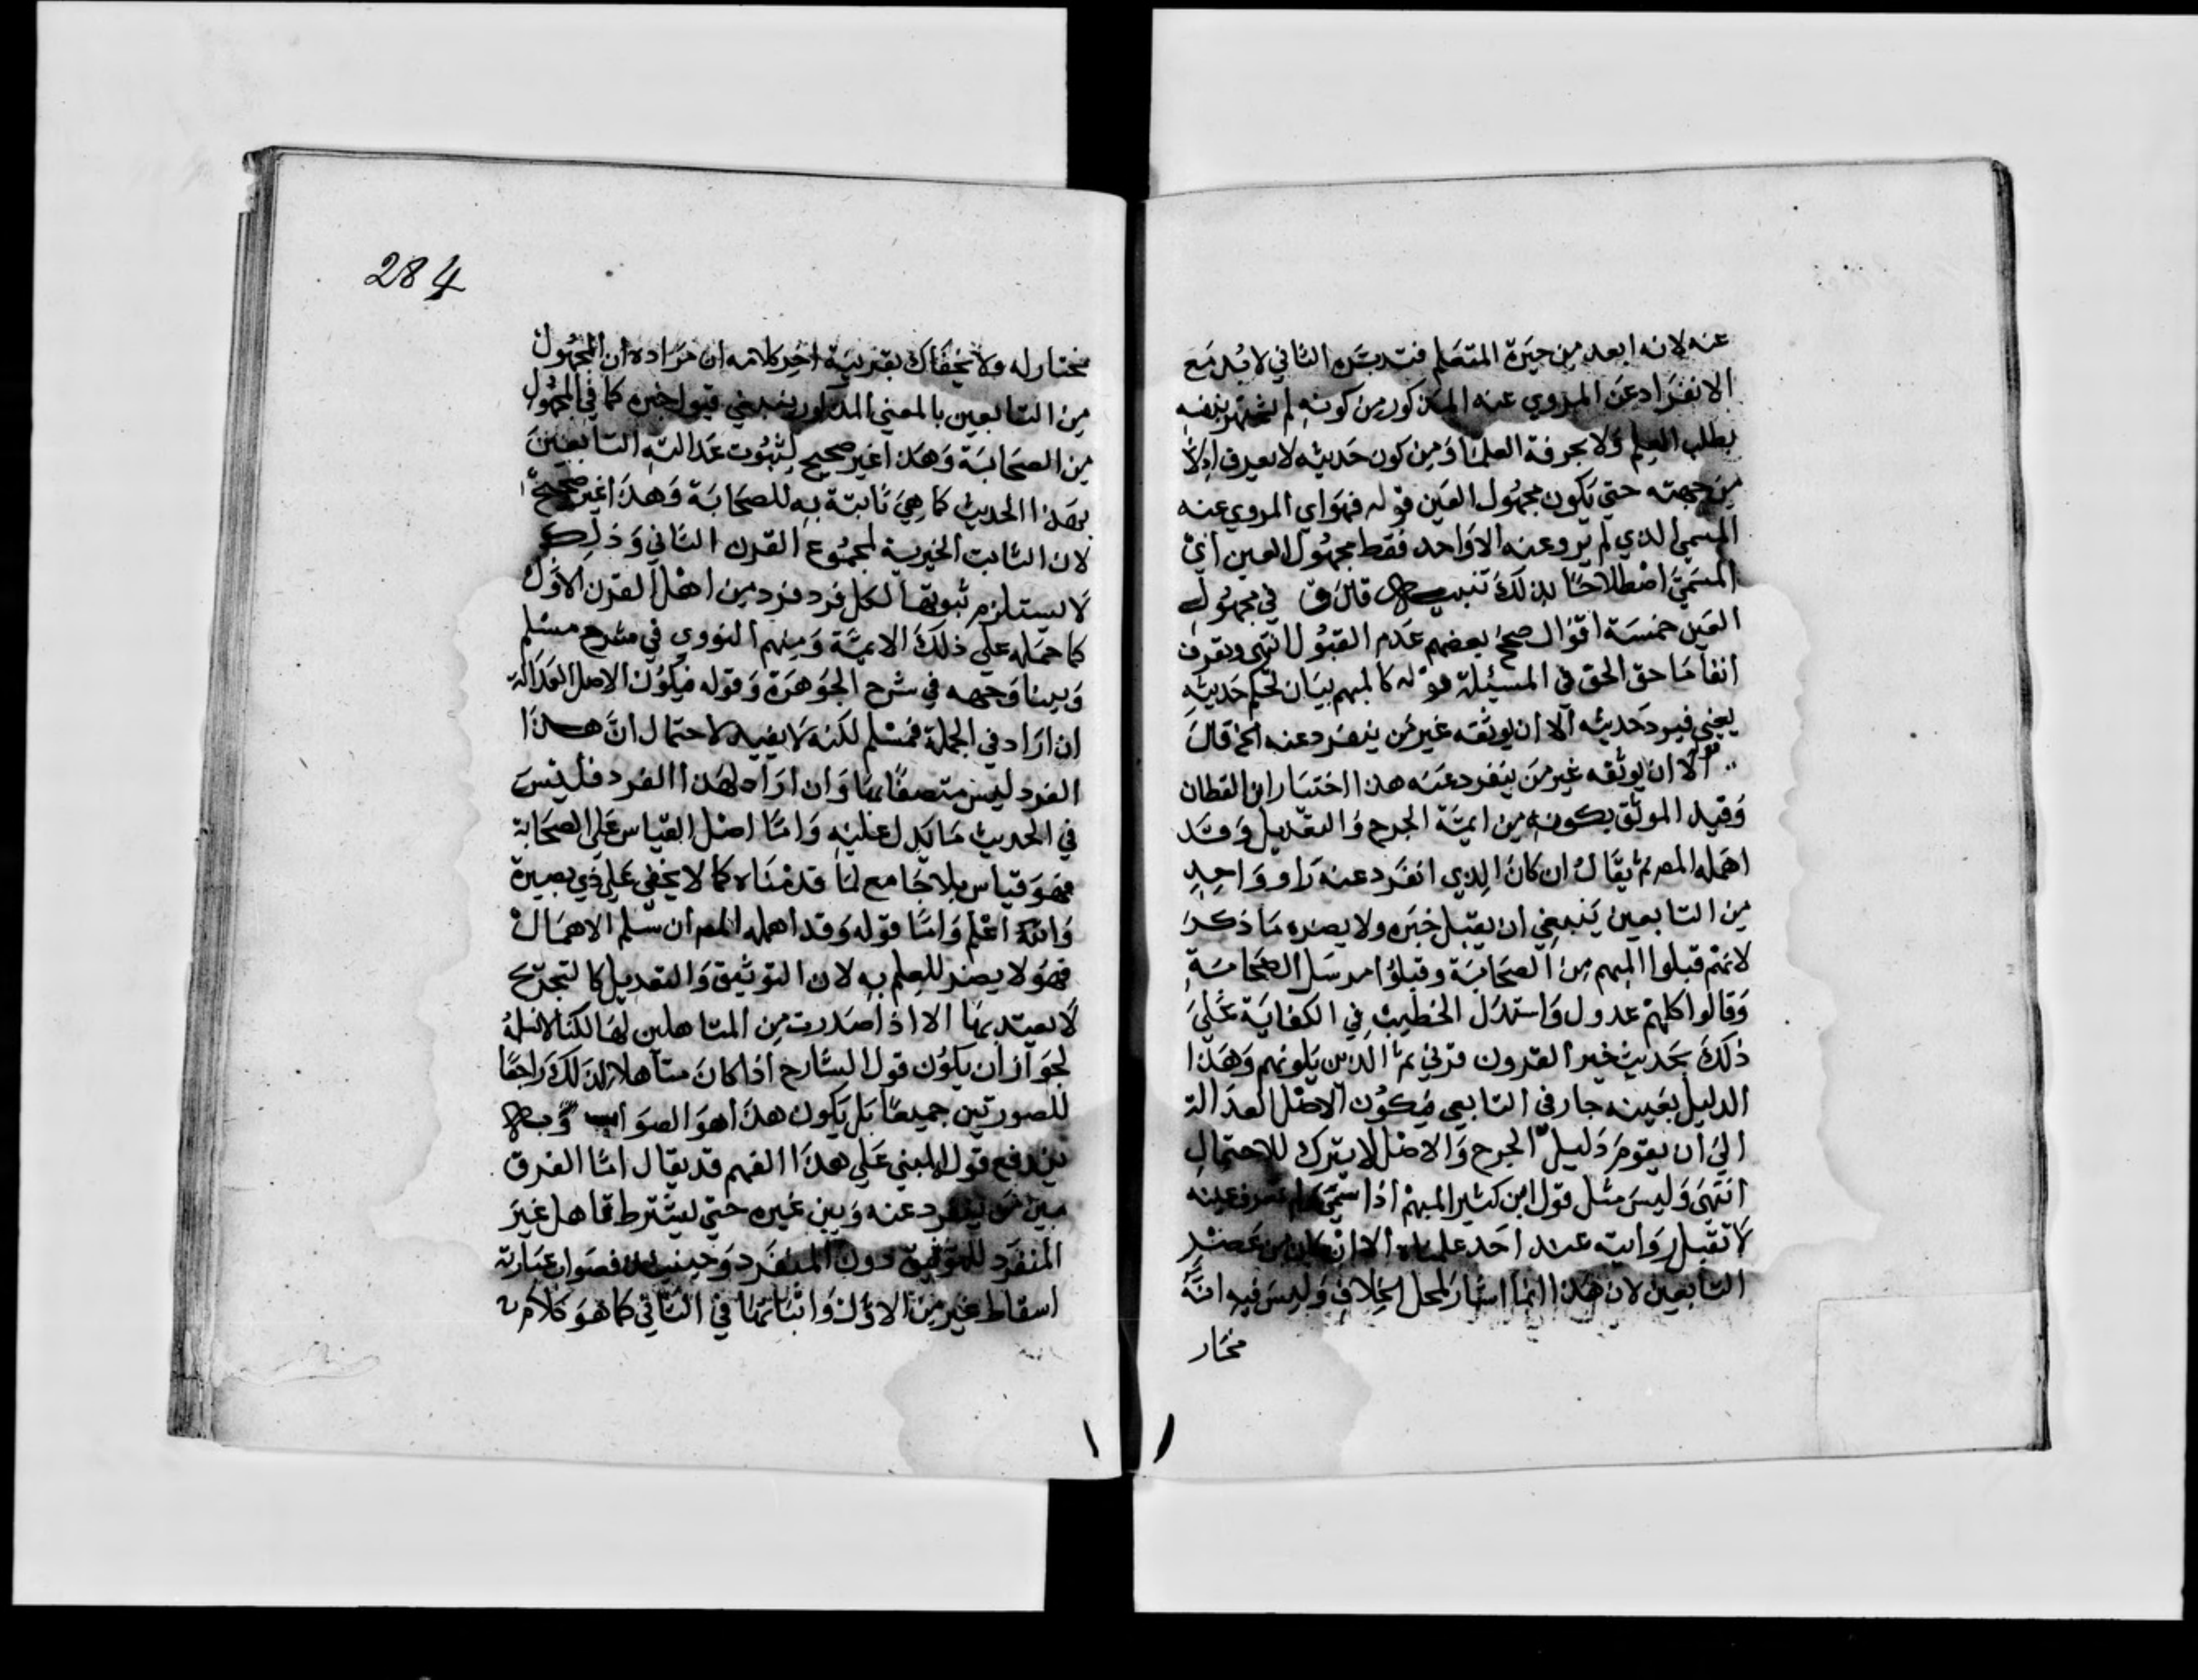 عنه لانه ابعد من حيرة المتعلم فتدبره الثاني لا بد مع
الانفراد عن المروي عنه المذكور من كونه لم يشتهر بنفسه
بطلب العلم ولا بمعرفة العلما ومن كون حديثه لا يعرف الا
من جهته حتى يكون مجهول العين قوله فهو اي المروي عنه
المسمى الذي لم يرو عنه الا واحد فقط مجهول العين اي
المسمى اصطلاحا بذلك تنبيه قال ق في مجهول
العين خمسة اقوال صحح بعضهم عدم القبول انتهى وتعرف
انفا ما حق الحق في المسئلة قوله كالمبهم بيان لحكم حديثه
يعني فيرد حديثه الا ان يوثقه غير من ينفرد عنه الخ قال
ق الا ان يوثقه غير من ينفرد عنه هذا اختيار ابن القطان
وقيد الموثق بكونه من ايمة الجرح والتعديل وقد
اهمله المص ثم يقال ان كان الذي انفرد عنه راو واحد
من التابعين ينبغي ان يقبل خبره ولا يضره ما ذكر
لانهم قبلوا المبهم من الصحابة وقبلوا مرسل الصحابة
وقالوا كلهم عدول واستدل الخطيب في الكفاية على
ذلك بحديث خير القرون قرني ثم الذين يلونهم وهذا
الدليل بعينه جار في التابعي فيكون الاصل العدالة
الى ان يقوم دليل الجرح والاصل لا يترك للاحتمال
انتهى وليس مثل قول ابن كثير المبهم اذا سمي ولم تعرف عينه
لا تقبل روايته عند احد علمناه الا ان كان من عصر
التابعين لان هذا انما اشار لمحل الخلاف وليس فيه انه
مختار
مختار له ولا يخفاك بقرينة اخر كلامه ان مراده ان المجهول
من التابعين بالمعنى المذكور ينبغي قبول خبره كما في المجهول
من الصحابة وهذا غير صحيح لثبوت عدالته التابعين
بهذا الحديث كما هي ثابتة به للصحابة وهذا غير صحيح
لان الثابت الخيرية لمجموع القرن الثاني وذلك
لا يستلزم ثبوتها لكل فرد فرد من اهل القرن الاول
كما حمله على ذلك الايمة ومنهم النووي في شرح مسلم
وبينا وجهه في شرح الجوهرة وقوله فيكون الاصل العدالة
ان اراد في الجملة فمسلم لكنه لا يفيد لاحتمال ان هذا
الفرد ليس متصفا بها وان اراد لهذا الفرد فليس
في الحديث ما يدل عليه واما اصل القياس على الصحابة
فهو قياس بلا جامع لما قدمناه كما لا يخفى على ذي بصيرة
والله اعلم واما قوله وقد اهمله المص ان سلم الاهمال
فهو لا يضر للعلم به لان التوثيق والتعديل كالتجريح
لا يعتد بها الا اذا صدرت من المتاهلين لها لكنا لا نسلمه
لجواز ان يكون قول الشارح اذا كان متاهلا لذلك راجعا
للصورتين جميعا بل يكون هذا هو الصواب وبه
يندفع قول المبني على هذا الفهم قد يقال اما الفرق
بين من ينفرد عنه وبين غيره حتى يشترط تاهل غير
المنفرد للتوثيق دون المنفرد وحينئذ فصواب عبارته
اسقاط غير من الاول واثباتها في الثاني كما هو كلام
284